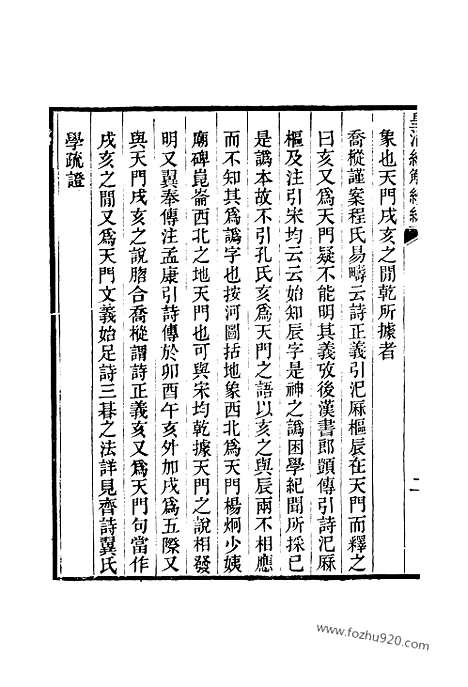 皇清經解續編
二
象也天門戌亥之閒乾所據者
喬樅謹案程氏易疇云詩正義引氾厤樞辰在天門而釋之
曰亥又爲天門疑不能明其義攷後漢書郎顗傳引詩氾厤
樞及注引宋均云云始知辰字是神之譌困學紀聞所採已
是譌本故不引孔氏亥爲天門之語以亥之與辰兩不相應
而不知其爲譌字也按河圖括地象西北爲天門楊炯少姨
廟碑崑崙西北之地天門也可與宋均乾據天門之說相發
明又翼奉傳注孟康引詩傳於卯酉午亥外加戌爲五際又
與天門戌亥之說脗合喬樅謂詩正義亥又爲天門句當作
戌亥之閒又爲天門文義始足詩三朞之法詳見齊詩翼氏
學疏證
www.fozhu920.com